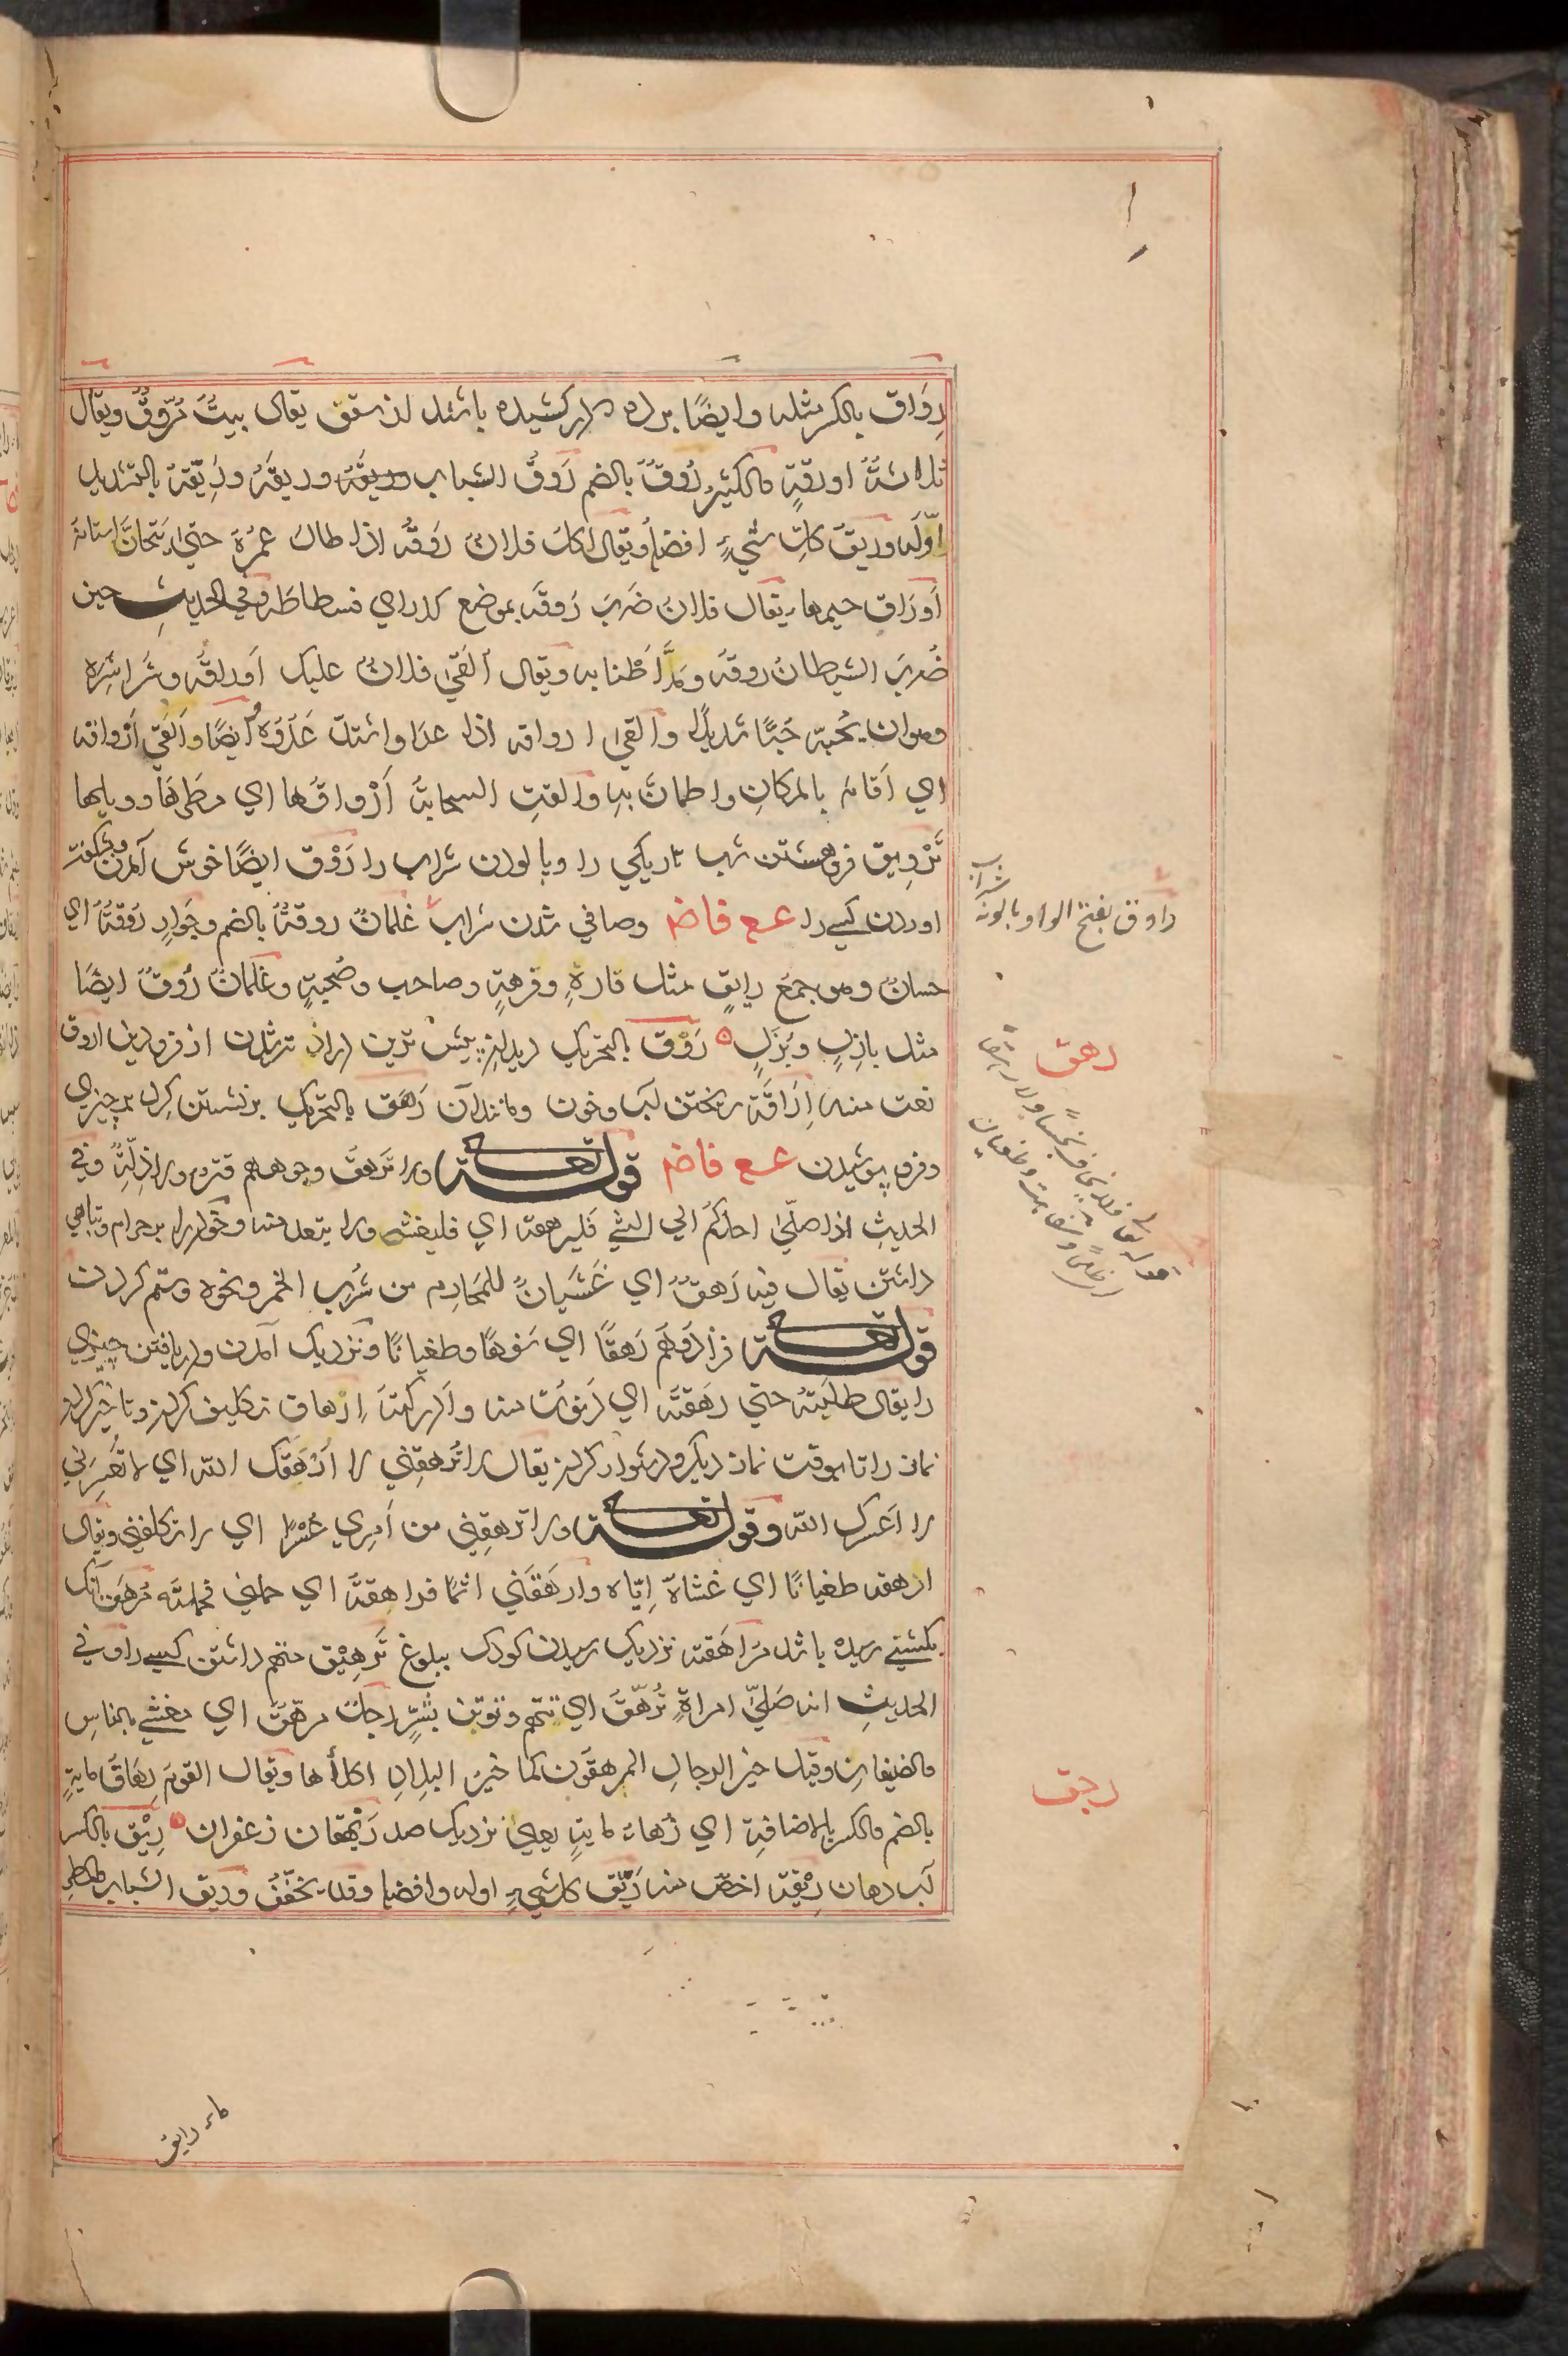 رِوَاق بالکسر مثله وایضًا پرده درازکشیده باشد از سقف یقال بیتٌ مُرَوَّقٌ ویقال
ثلاثةُ اَورِقَةٍ والکثیرُ رُوقٌ بالضم رَوقُ الشباب وریقه وریقَهُ ورَیِّقهُ بالتشدید
اوّلَه وریقَ کلِّ شيءٍ افضلهُ ویقال اکل فلانٌ رَوقَه اذا طال عمرُهُ حتی تحاتَّ اسنانه
اَورَاق جمعها یقال فلانٌ ضَربَ رَوقَه بموضع کذا ای فسطاطَه وفي الحدیثِ حین
ضُربَ الشیطانُ روقَه ومَدَّ اَطْنابه ویقال اَلقیٰ فلانٌ علیک اَوراقَه وشراشِرَه
وهو ان یُحبّه حُبًّا شدیدًا والقیٰ ارواقه اذا عدا واشتدّ عَدْوُهُ ایضًا واَلقیٰ اَرْواقه
اي اَقامَ بالمکانِ واطمانَّ بهِ والقتِ السحابةُ اَرْواقَها اي مطرها ووبلها
تَرْوِیق فروهشتن شب تاریکي را وپالودن شراب را رَوْق ایضًا خوش آمدن وبشکفت
اوردن کسے را عـع فاضـ وصافي شدن شراب غلمانٌ روقةٌ بالضم وجَوارٍ رَوْقةٌ اي
حسانٌ وهو جمعُ رایقٍ مثل فارِهٍ وفرهةٍ وصاحب وصُحبةٍ وغلمانٌ رُوقٌ ایضًا
مثل بازِلٍ وبُزْلٍ رَوَق بالتحریک دندانهای پیشین دراز تر شدن از فرودین اَروَق
نعت منه اِرَاقَة ریختن آب وخون ومانندآن رَهَق بالتحریک برنشستن گرد بر چیزي
وفروپوشیدن عـع فاضـ قولـه تعـ ولا تَرهقُ وجوههم قترٌ ولا ذِلّةٌ وفي
الحدیثِ اذا صلّیٰ احدُکُم الی الشيءِ فلیرهقه اي فلیغشه ولا یبعد منه وخود را بر حرام وتباهي
داشتن یقال فیه رَهَقٌ اي غَشَیانٌ للمَحَارِم من شُربِ الخمر ونحوه وستم کردن
قولـه تعـ فزادوهم رَهَقًا اي سَفَهًا وطغیانًا ونزدیک آمدن ودریافتن چیزي
را یقال طلبتهُ حتی رهَقتُه اي دَنَوتُ منه واَدرکتُه اِرْهاق تکلیف کردن وتاخیر کردن
نماز را تا بوقت نماز دیگر ودشوار کردن یقال لا تُرهِقني لا اَرْهَقک الله اي لا تُعسِرني
لا اَعسرک الله وقولـه تعـ ولا ترهِقني من اَمري عُسْرًا اي لا تکلفني ویقال
ارهقه طغیانًا اي غشاهُ اِیّاه وارهَقَني اثمًا فراهقته اي حملني فحملتُه مُرهَق آنک
بکشتنے رسیده باشد مُرَاهَقة نزدیک رسیدن کودک ببلوغ تَرهِیْق متهم داشتن کسے را وفي
الحدیثِ انه صَلیّٰ امراةٍ تُرهَّقُ اي تتهم وتوبَن بشرٍّ رجلٌ مرهّقٌ اي مغشي بالناسِ
والضیفانِ وقیل خیر الرجالِ المرهقون کما خیرُ البلدانِ اکلأها ویقال القومُ رُهَاقُ مایةٍ
بالضم والکسر بالاضافة اي زُهاءُ مایةٍ یعني نزدیک صد رَیْهقان زعفران رِیْق بالکسر
آب دهان رِیْقَة اخصّ منه رَیّق کلِّ شيءٍ اوله وافضله وقد یخفّفُ وریق الشباب والمطر
راوق بفتح الواو پالونه شراب
رهق
ریق
ماء رایق